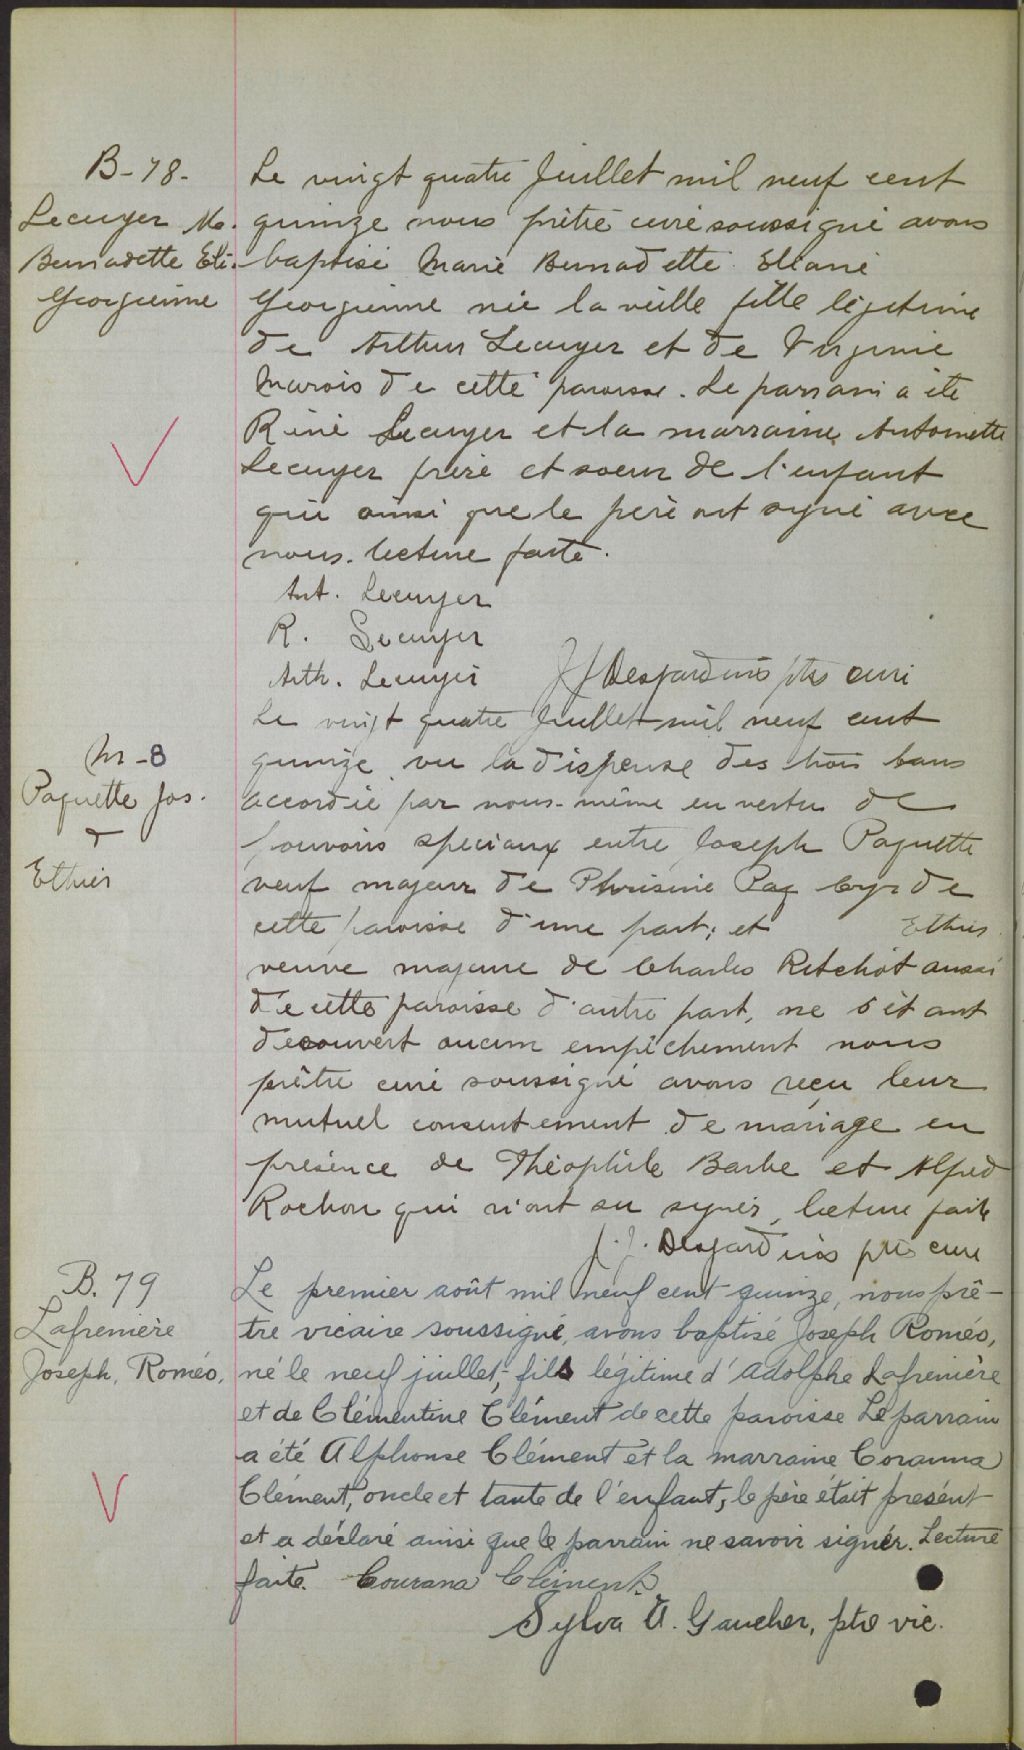 B-78-
Lecuyer Me.
Bernadette Eli.
Georgienne
Le vingt quatre Juillet mil neuf cent
quinze nous prêtre curé soussigné avons
baptisé Marie Bernadette Eliane
Georgienne née la veille fille légitime
de Arthur Lecuyer et de Virginie
Marois de cette paroisse. Le parrain a été
Réné Lecuyer et la marraine Antoinette
Lecuyer frère et soeur de l'enfant
qui ainsi que le père ont signé avec
nous. lecture faite.
Ant. Lecuyer
R. Lecuyer
Arth. Lecuyer JJ Desjardins ptre curé
M-8
Paquette Jos.
&
Ethier
Le vingt quatre Juillet mil neuf cent
quinze vu la dispense des trois bans
accordée par nous-même en vertu de
pouvoirs speciaux entre Joseph Paquette
veuf majeur de Cyr de
cette paroisse d'une part; et Ethier
veuve majeure de Charles Ritchot aussi
de cette paroisse d'autre part, ne s'étant
decouvert aucun empêchement nous
prêtre curé soussigné avons reçu leur
mutuel consentement de mariage en
présence de Théophile Barbe et Alfred
Rochon qui n'ont su signer, lecture faite
J.J. Desjardins ptre curé
B. 79
Lafrenière
Joseph, Roméo,
Le premier août mil neuf cent quinze, nous prê-
tre vicaire soussigné, avons baptisé Joseph Roméo,
né le neuf juillet, fils légitime d'Adolphe Lafrenière
et de Clémentine Clément de cette paroisse Le parrain
a été Alphonse Clément et la marraine Coranna
Clément, oncle et tante de l'enfant, le père était présent
et a déclaré ainsi que le parrain ne savoir signer. Lecture
faite. Courana Clément
Sylva A. Gaucher, ptre vic.